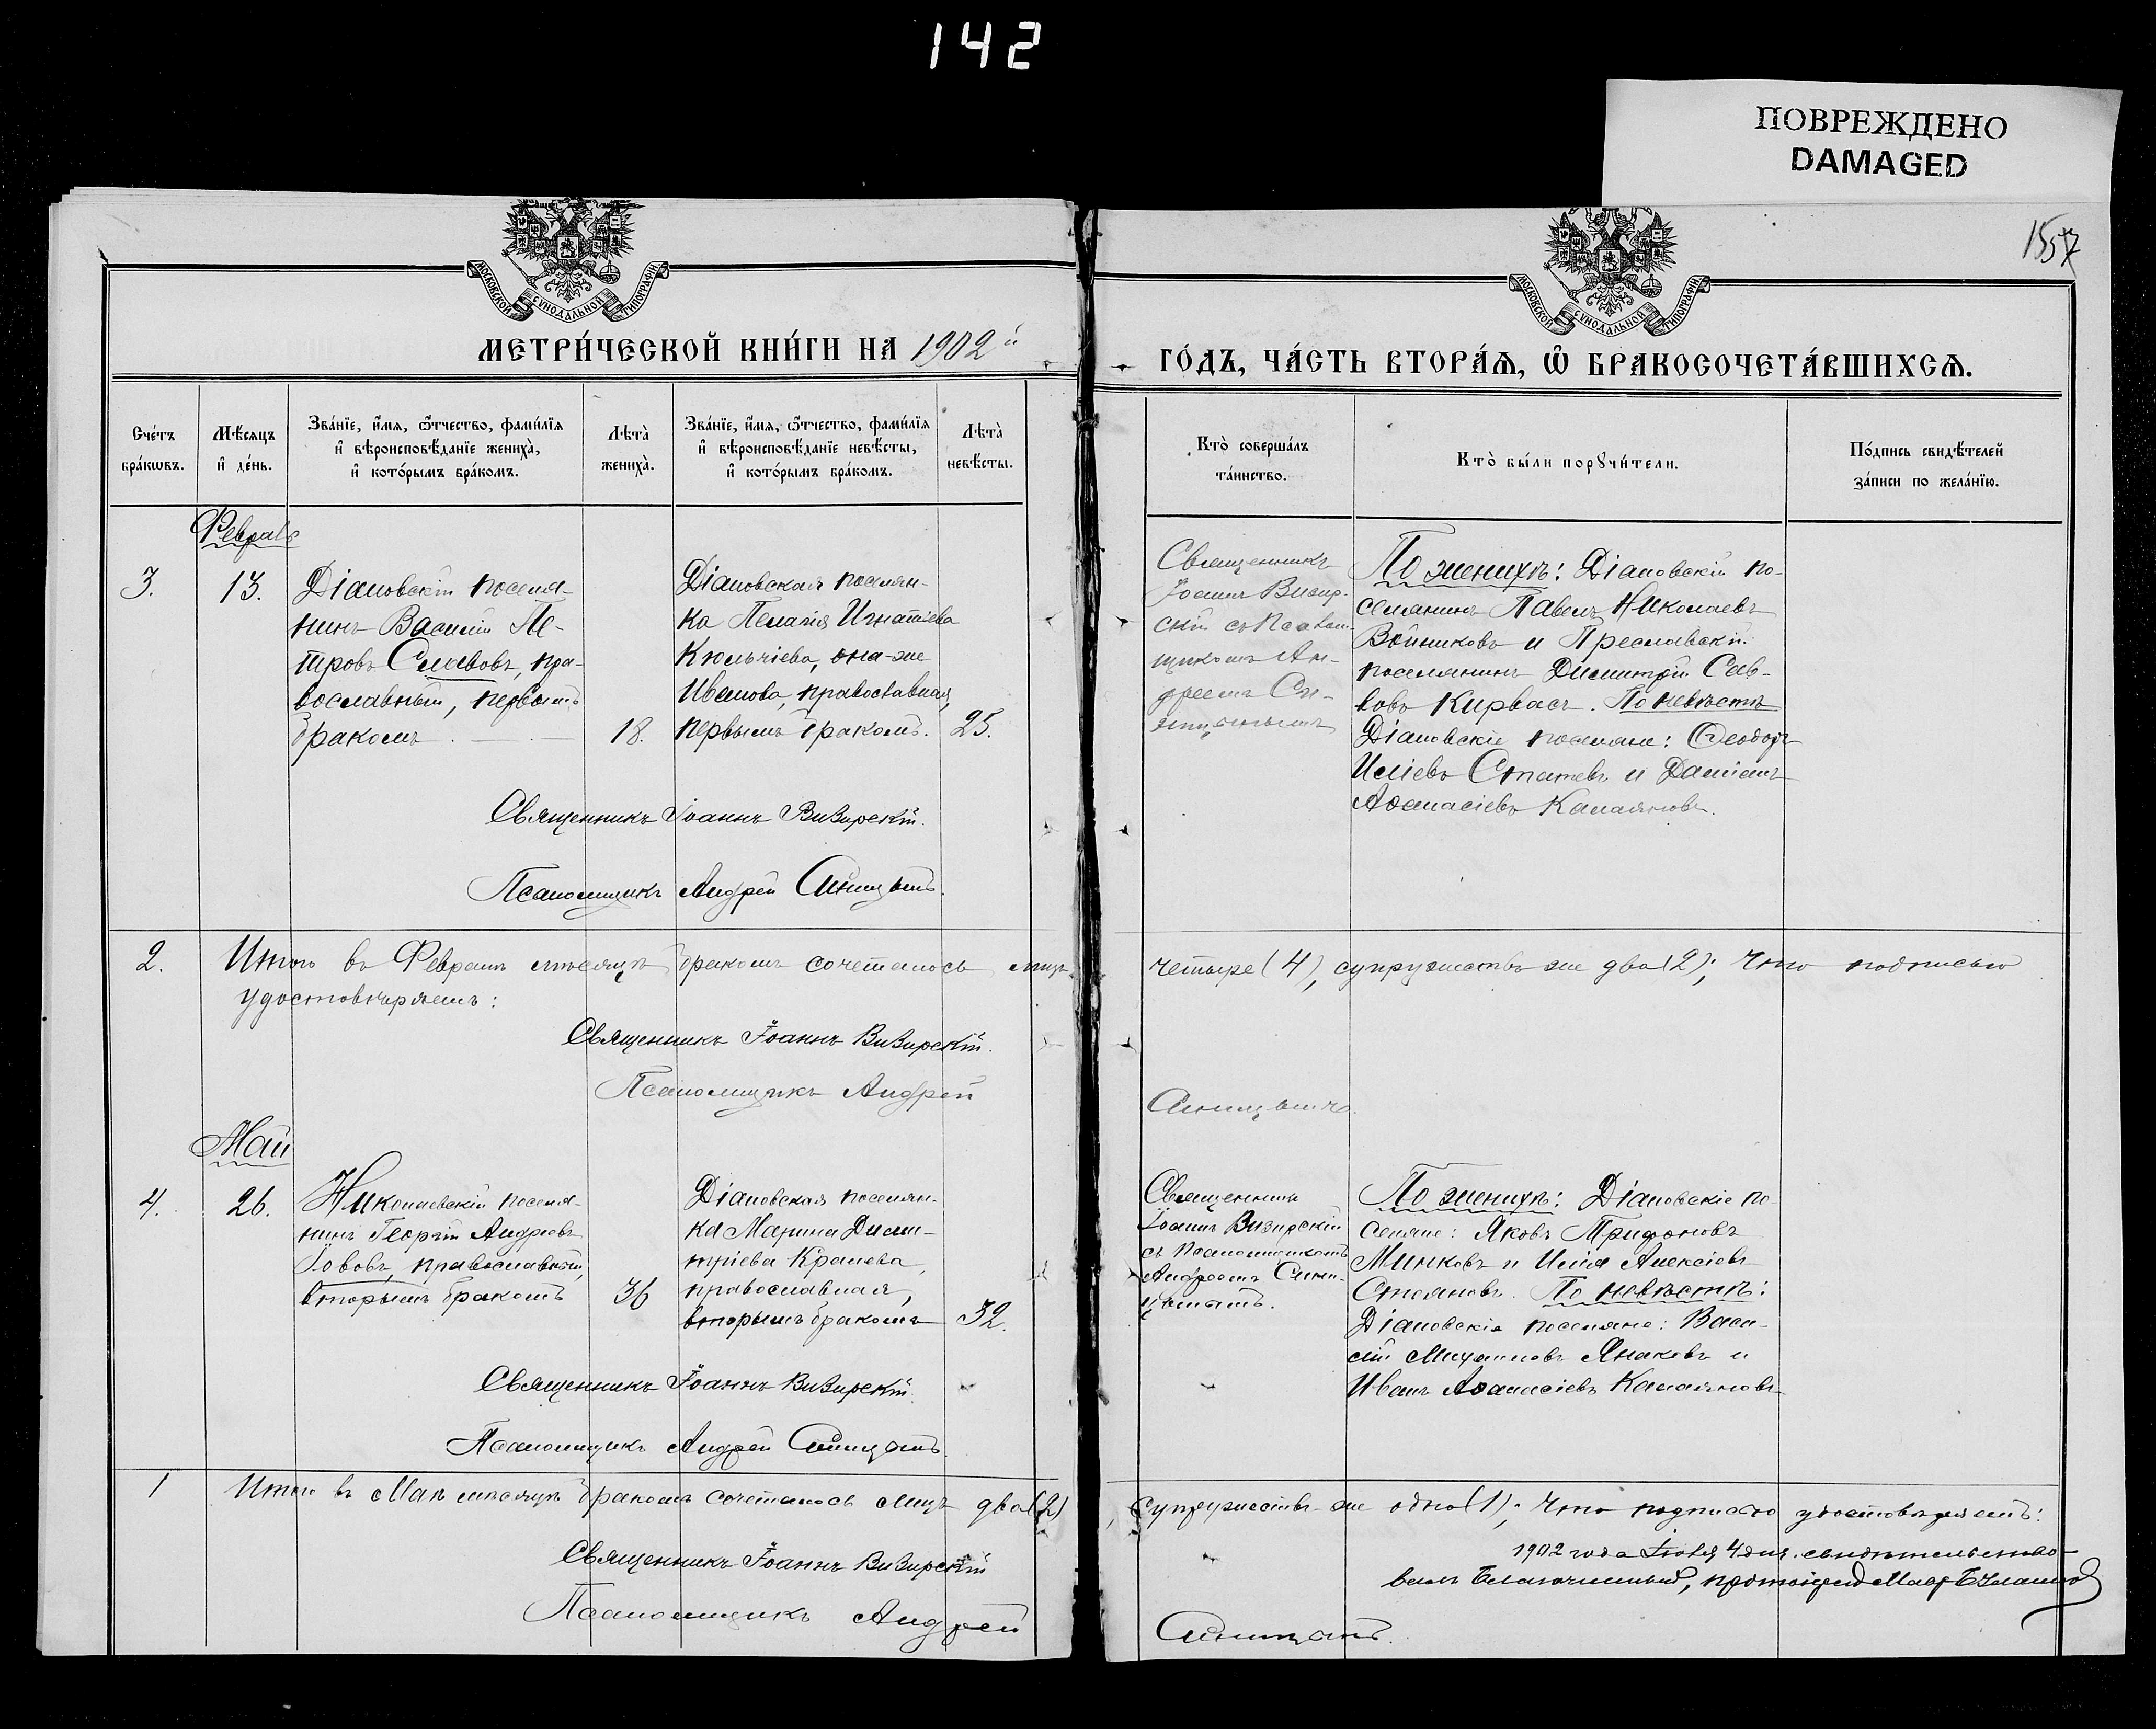 142
ПОВРЕЖДЕНО
DAMAGED
1557
МОСКОВСКОЙ СУНОДАЛЬНОЙ ТИПОГРАФІИ
МОСКОВСКОЙ СУНОДАЛЬНОЙ ТИПОГРАФІИ
МЕТРИ́ЧЕСКОЙ КНИ́ГИ НА 1902й
ГО́ДЪ, ЧА́СТЬ ВТОРА́Я, Ѡ҆ БРАКОСОЧЕТА́ВШИХСЯ.
Сче́тъ
бра́ковъ.
Мѣ́сяцъ
и҆ де́нь.
Зва́нїе, и҆́мя, ѻ҆́тчество, фами́лїя
и҆ вѣроисповѣ́данїе жениха̀,
и҆ кото́рымъ бра́комъ.
Лѣта̀
жениха̀.
Зва́нїе, и҆́мя, ѻ҆́тчество, фами́лїя
и҆ вѣроисповѣ́данїе невѣ́сты,
и҆ кото́рымъ бра́комъ.
Лѣта̀
невѣ́сты.
Кто̀ соверша́лъ
та́инство.
Кто̀ бы́ли порꙋчи́тели.
По́дпись свидѣ́телей
за́писи по жела́нїю.
Февраль
3.
13.
Діановскій поселя-
нинъ Василій Пе-
тровъ Славовъ, пра-
вославный, первымъ
бракомъ
18.
Діановская поселян-
ка Пелагія Игнатіева
Кюльчіева, она-же
Иванова, православная,
первымъ бракомъ.
25.
Священникъ
Іоаннъ Визир-
скій съ псалом-
щикомъ Ан-
дреемъ Си-
По женихѣ: Діановскій по-
селянинъ Павелъ Николаевъ
Войниковъ и Преславскій
поселянинъ Димитрій Сав-
вовъ Кирвасъ. По невѣстѣ
Діановскіе поселяне: Ѳеодоръ
Иліевъ Статевъ и Даміанъ
Аѳанасіевъ Калаяновъ.
Священникъ Іоаннъ Визирскій.
Псаломщикъ Андрей Синицынъ.
2.
Итого въ Февралѣ мѣсяцѣ бракомъ сочеталось лицъ
четыре (4), супружествъ же два (2); Что подписью
удостовѣряемъ:
Священникъ Іоаннъ Визирскій.
Псаломщикъ Андрей
Синицынъ.
Май
4.
26.
Николаевскій поселя-
нинъ Георгій Андреевъ
Іововъ, православный,
вторымъ бракомъ
36
Діановская поселян-
ка Марина Дими-
тріева Кралева,
православная,
вторымъ бракомъ
32.
Священникъ
Іоаннъ Визирскій
съ псаломщикомъ
Андреемъ Сини-
цынымъ.
По женихѣ: Діановскіе по-
селяне: Яковъ Трифоновъ
Минковъ и Илія Алексіевъ
Стояновъ. По невѣстѣ:
Діановскіе поселяне: Васи-
лій Михаиловъ Янаковъ и
Иванъ Аѳанасіевъ Калаяновъ
Священникъ Іоаннъ Визирскій.
Псаломщикъ Андрей Синицынъ.
1
Итого въ Маѣ мѣсяцѣ бракомъ сочеталось лицъ два (2)
супружествъ же одно (1); Что подписью удостовѣряемъ:
Священникъ Іоаннъ Визирскій
1902 года Іюля 4 дня свидѣтельство-
валъ Благочинный, протоіерей
Псаломщикъ Андрей
Синицынъ.